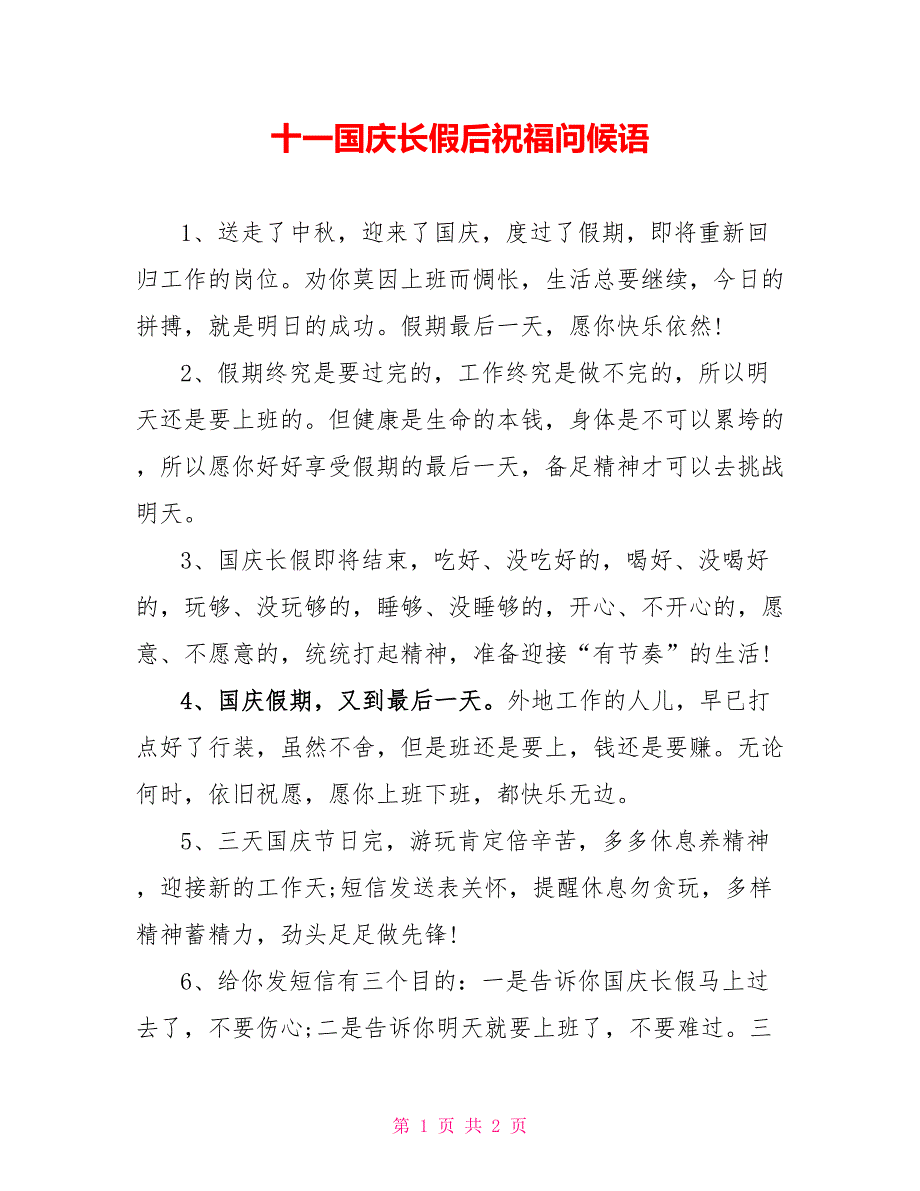 十一国庆长假后祝福问候语
1、送走了中秋，迎来了国庆，度过了假期，即将重新回
归工作的岗位。劝你莫因上班而惆怅，生活总要继续，今日的
拼搏，就是明日的成功。假期最后一天，愿你快乐依然!
2、假期终究是要过完的，工作终究是做不完的，所以明
天还是要上班的。但健康是生命的本钱，身体是不可以累垮的
，所以愿你好好享受假期的最后一天，备足精神才可以去挑战
明天。
3、国庆长假即将结束，吃好、没吃好的，喝好、没喝好
的，玩够、没玩够的，睡够、没睡够的，开心、不开心的，愿
意、不愿意的，统统打起精神，准备迎接“有节奏”的生活!
4、国庆假期，又到最后一天。外地工作的人儿，早已打
点好了行装，虽然不舍，但是班还是要上，钱还是要赚。无论
何时，依旧祝愿，愿你上班下班，都快乐无边。
5、三天国庆节日完，游玩肯定倍辛苦，多多休息养精神
，迎接新的工作天;短信发送表关怀，提醒休息勿贪玩，多样
精神蓄精力，劲头足足做先锋!
6、给你发短信有三个目的：一是告诉你国庆长假马上过
去了，不要伤心;二是告诉你明天就要上班了，不要难过。三
第 1 页 共 2 页